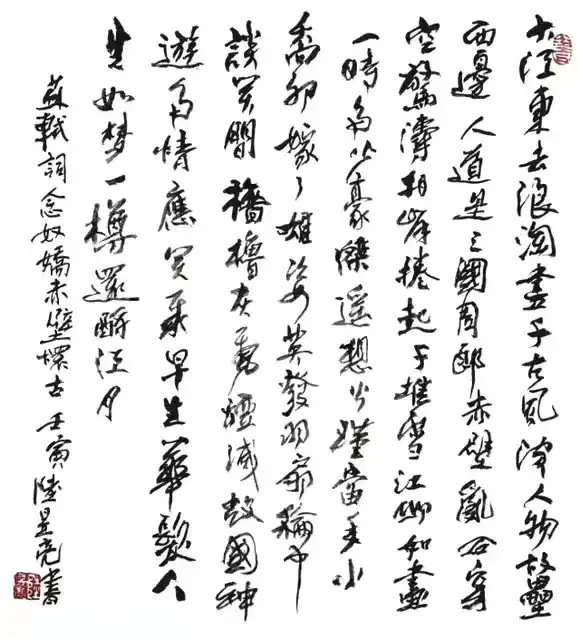 大江東去浪淘盡千古風流人物故壘
西邊人道是三國周郎赤壁亂石穿
空驚濤拍岸捲起千堆雪江山如畫
一時多少豪傑遥想公瑾當年小
喬初嫁了雄姿英發羽扇綸巾
談笑間檣櫓灰飛煙滅故國神
遊多情應笑我早生華髮人
生如梦一樽還酹江月
蘇軾詞念奴嬌赤壁懷古壬寅陸昱亮書